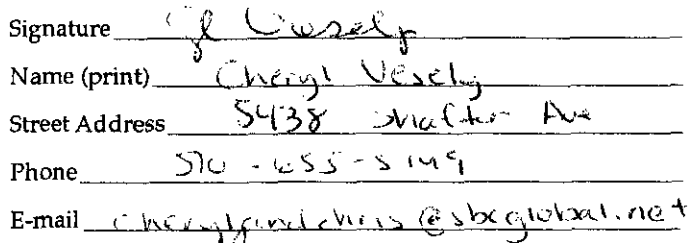 Signature
Name (print) Cheryl Vesely
Street Address 5438 Shafter Ave
Phone
E-mail cherylandchris@sbcglobal.net